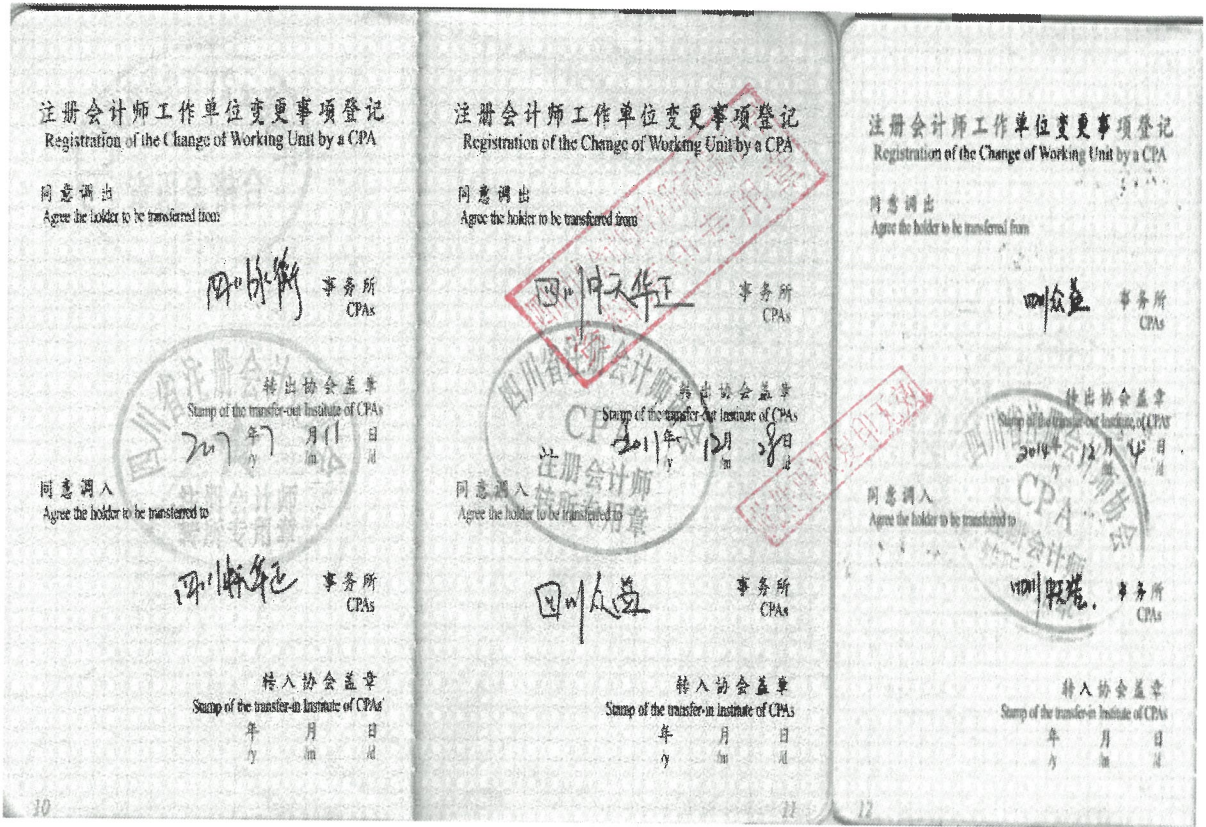 注册会计师工作单位变更事项登记
Registration of the Change of Working Unit by a CPA
同意调出
Agree the holder to be transferred from
四川 事务所
CPAs
四川省注册会计师协会
转出协会盖章
Stamp of the transfer-out Institute of CPAs
2007年7月11日
/y /m /d
注册会计师
转所专用章
同意调入
Agree the holder to be transferred to
四川 华正 事务所
CPAs
转入协会盖章
Stamp of the transfer-in Institute of CPAs
年 月 日
/y /m /d
10
注册会计师工作单位变更事项登记
Registration of the Change of Working Unit by a CPA
同意调出
Agree the holder to be transferred from
四川中天华正 事务所
CPAs
专用章
四川省注册会计师协会
CPA
转出协会盖章
Stamp of the transfer-out Institute of CPAs
2011年12月28日
/y /m /d
注册会计师
转所专用章
同意调入
Agree the holder to be transferred to
四川众益 事务所
CPAs
再复印无效
转入协会盖章
Stamp of the transfer-in Institute of CPAs
年 月 日
/y /m /d
11
注册会计师工作单位变更事项登记
Registration of the Change of Working Unit by a CPA
同意调出
Agree the holder to be transferred from
四川众益 事务所
CPAs
四川省注册会计师协会
CPA
转出协会盖章
Stamp of the transfer-out Institute of CPAs
2014年12月4日
/y /m /d
注册会计师
同意调入
Agree the holder to be transferred to
四川 事务所
CPAs
转入协会盖章
Stamp of the transfer-in Institute of CPAs
年 月 日
/y /m /d
12